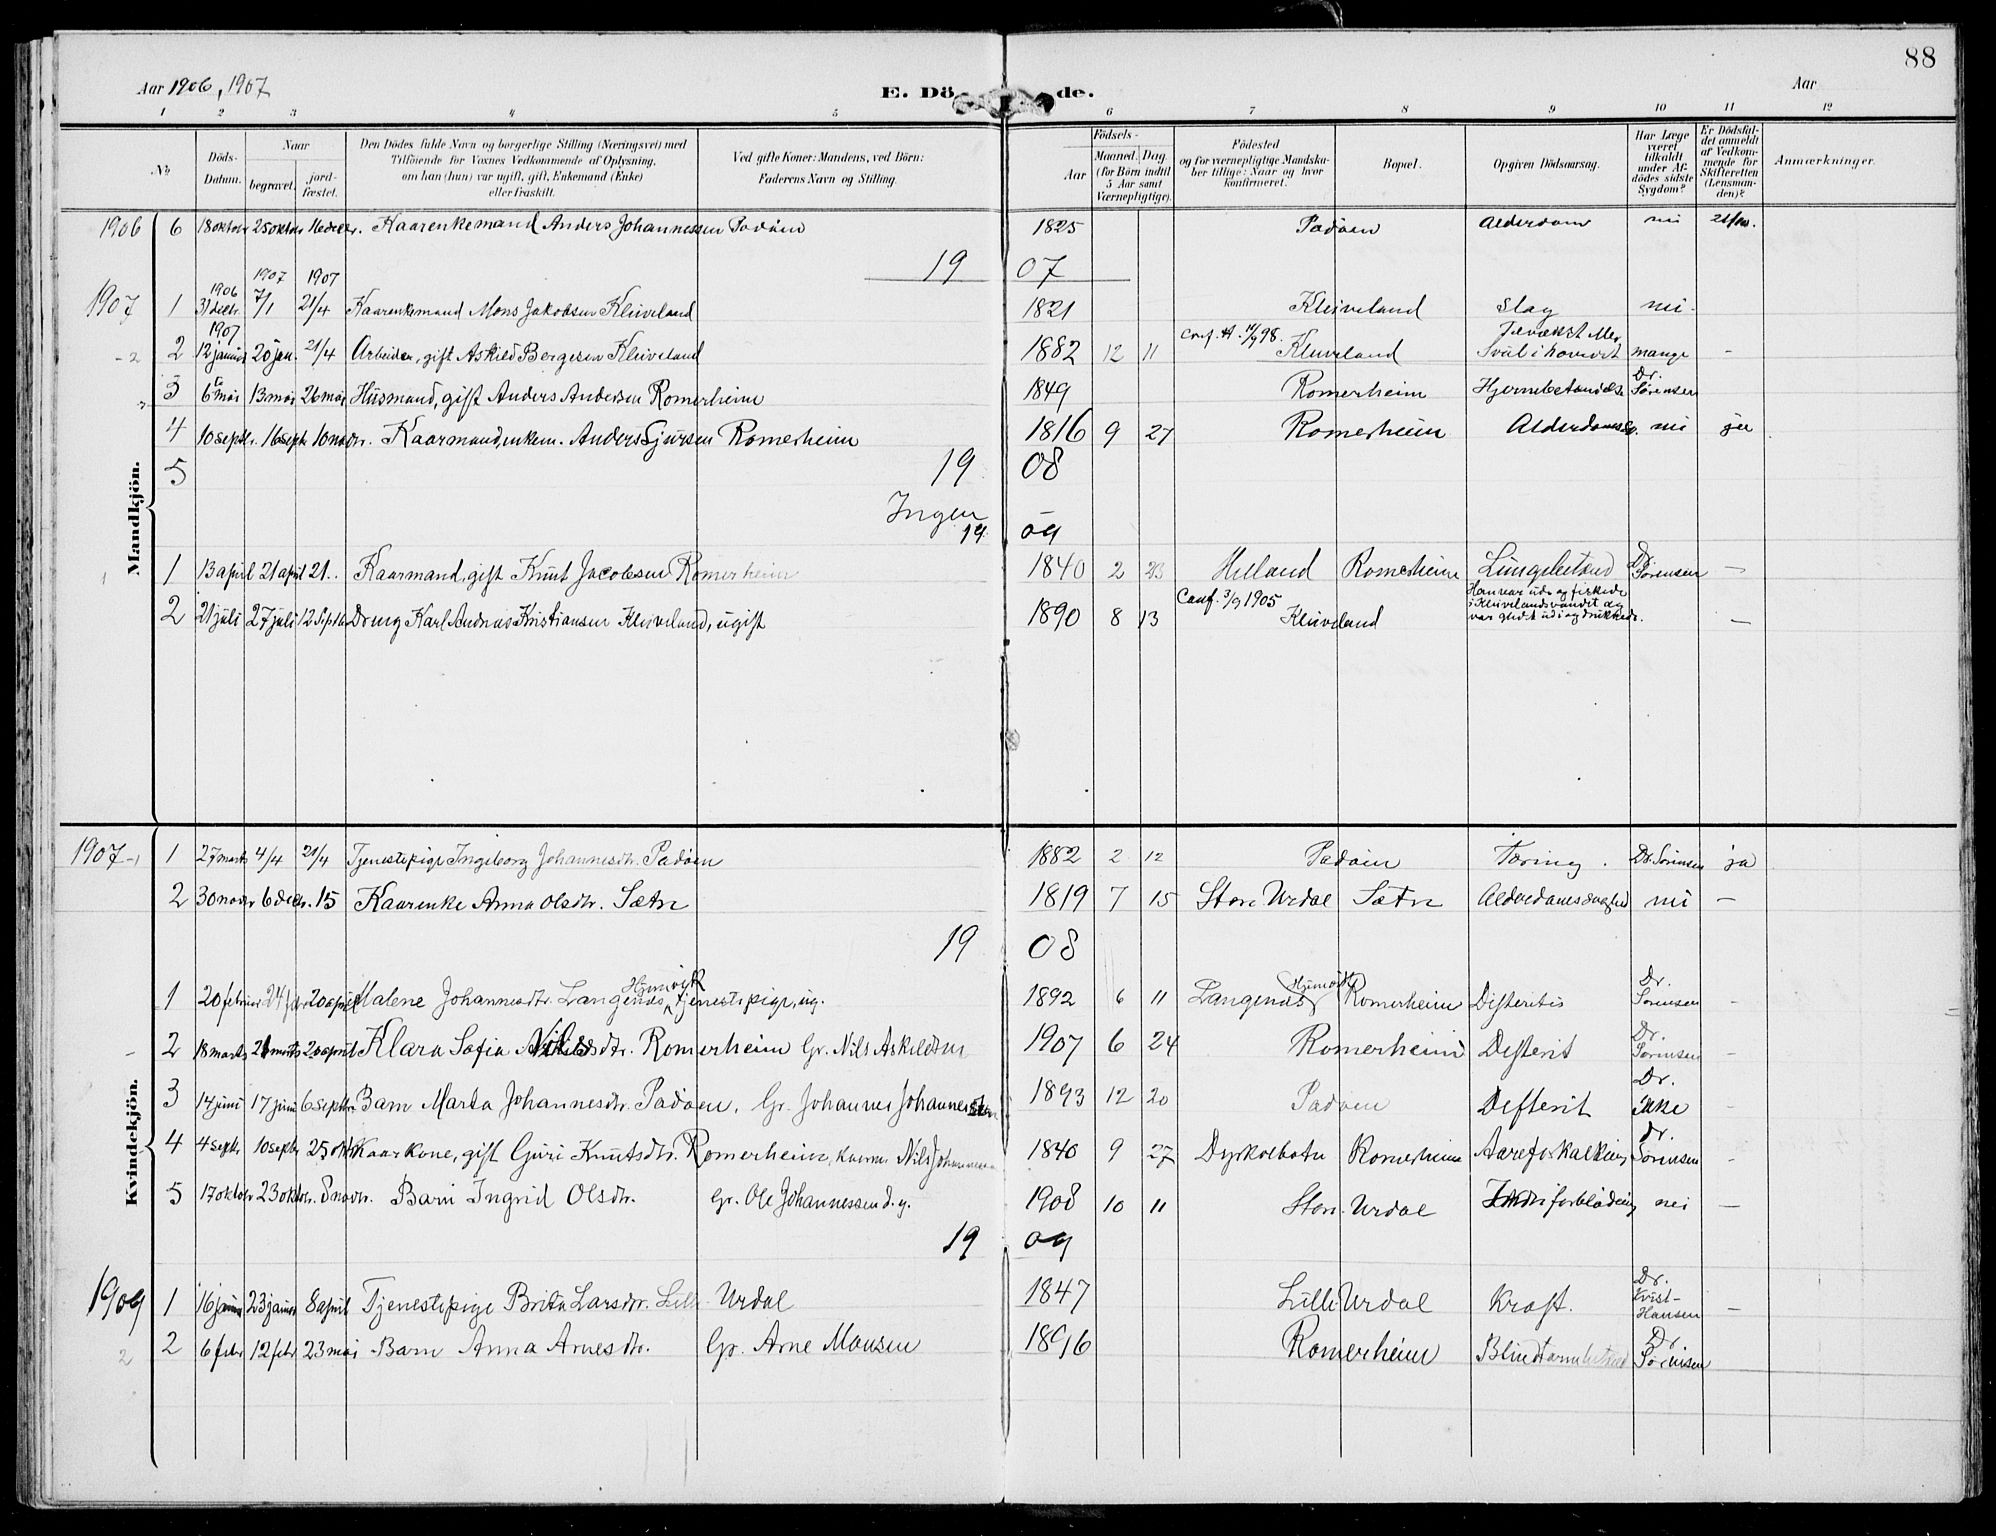 88
Aar 1906, 1907
E. Dö de.
Aar
1 2 3 4 5 6 7 8 9 10 11 12
No
Döds-Datum.
Naar
begravet.
jord-fæstet.
Den Dödes fulde Navn og borgerlige Stilling (Næringsvei) med
Tilföiende for Voxnes Vedkommende af Oplysning,
om han (hun) var ugift, gift, Enkemand (Enke)
eller fraskilt.
Ved gifte Koner: Mandens, ved Börn:
Faderens Navn og Stilling.
Födsels-
Aar
Maaned. Dag
(for Börn indtil
5 Aar samt
Værnepligtige).
Födested
og for værnepligtige Mandska-
ber tillige: Naar og hvor
konfirmeret.
Bopæl.
Opgiven Dödsaarsag.
Har Læge
været
tilkaldt
under Af-
dödes sidste
Sygdom?
Er Dödsfal-
det anmeldt
af Vedkom-
mende for
Skifteretten
(Lensman-
den)?
Anmærkninger.
Mandkjön.
1906 6 18 oktobr 25 oktbr 16 decbr. Kaarenkemand Anders Johannessen Padöen 1825 Padöen Alderdom nei
19 07
1906 1907 1907
1907 1 31 decbr. 7/1 21/4 Kaarenkemand Mons Jakobsen Kleiveland 1821 Kleiveland Slag nei
1907
2 12 januar 20 jan. 21/4 Arbeider, gift Askild Bergesen Kleiveland 1882 12 11 Conf. Kleiveland mange –
3 6 mai 13 mai 26 mai Husmand, gift Anders Andersen Romerheim 1849 Romerheim Hjernebetændelse Dr. Sörensen
4 10 septbr. 16 septr 10 novbr. Kaarmand, enkem. Anders Sjursen Romerheim 1816 9 27 Romerheim nei ja
5 19 08
Ingen
19 09
1 13 april 21 april 21.. Kaarmand, gift Knut Jacobsen Romerheim 1840 2 23 Helland Romerheim Lungebetænd Dr. Sörensen –
2 21 juli 27 juli 12 Septbr Dreng Karl Andreas Kristiansen Kleiveland, ugift 1890 8 13 Conf. 3/9 1905 Kleiveland Han var ude og fiskede
i Kleivelandsvandet og
var gledet udi og druknede. –
Kvindekjön.
1907 1 27 marts 4/4 21/4 Tjenestepige Ingeborg Johannesdtr. Padöen 1882 2 12 Padöen Tæring. Dr. Sörensen ja
2 30 novbr 6 decbr. 15 Kaarenke Anna Olsdtr. Sætre 1819 7 15 Store Urdal Sætre Alderdomssvaghed nei –
19 08
1 20 februar 24 20 april Malene Johannesdtr. Langenæs, tjenestepige, ug. 1892 6 11 Langenæs Romerheim Difteritis Dr. Sörensen –
2 18 marts 26 marts 20 april Klara Sofia Nilsdtr. Romerheim Gr. Nils Askildsen 1907 6 24 Romerheim Difterit Dr. Sörensen –
3 14 juni 17 juni 6 septbr. Barn Marta Johannesdtr. Padöen. Gr. Johannes Johannessen 1893 12 20 Padöen Difterit Dr. –
4 4 septr 10 septr 25 okt Kaarkone, gift Guri Knutsdtr. Romerheim, Nils Johannessen 1840 9 27 Dyrkolbotn Romerheim Aareforkalkning Dr. Sörensen –
5 17 oktbr 23 oktbr. 8 novbr. Barn Ingrid Olsdtr. Gr. Ole Johannessen d.y. 1908 10 11 Store Urdal Indre forblödning nei –
19 09
1909 1 16 januar 23 januar 8 april Tjenestepige Brita Larsdtr. Lille Urdal 1847 Lille Urdal Kræft. Dr. Kvist-Hansen –
2 6 febr 12 febr 23 mai Barn Anna Arnesdtr. Gr. Arne Monsen 1896 Romerheim Blindtarmbetænd Dr. Sörensen